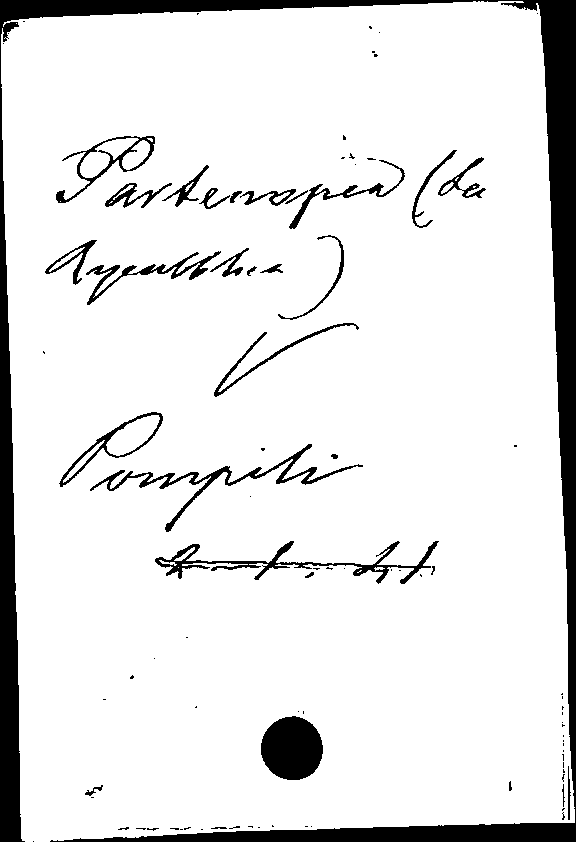 Partenopea (La
Repubblica)
V
Pompili